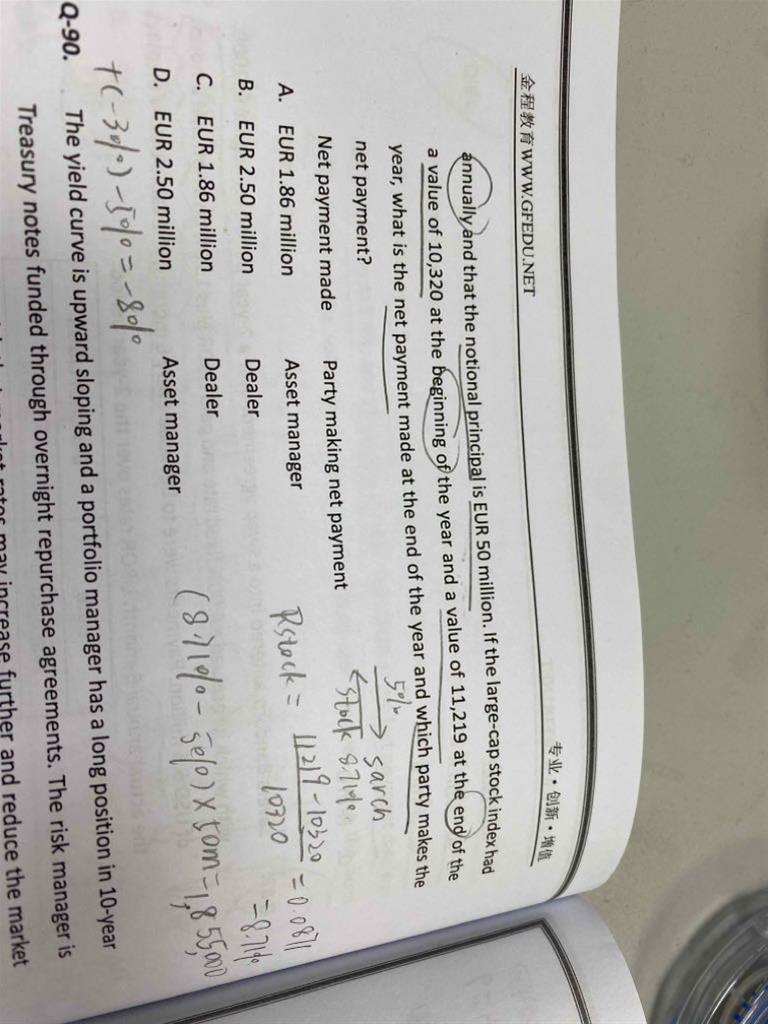 金程教育 WWW.GFEDU.NET 专业·创新·增值
annually and that the notional principal is EUR 50 million. If the large-cap stock index had
a value of 10,320 at the beginning of the year and a value of 11,219 at the end of the
year, what is the net payment made at the end of the year and which party makes the
net payment?
5% sarch
stock 8.71%
Net payment made Party making net payment
A. EUR 1.86 million Asset manager
B. EUR 2.50 million Dealer
C. EUR 1.86 million Dealer
D. EUR 2.50 million Asset manager
Rstock = 11219-10320 = 0.0871
10320 = 8.71%
(8.71% - 5%) × 50m = 1,855,000
+(-3%) - 5% = -8%
Q-90. The yield curve is upward sloping and a portfolio manager has a long position in 10-year
Treasury notes funded through overnight repurchase agreements. The risk manager is
market rates may increase further and reduce the market